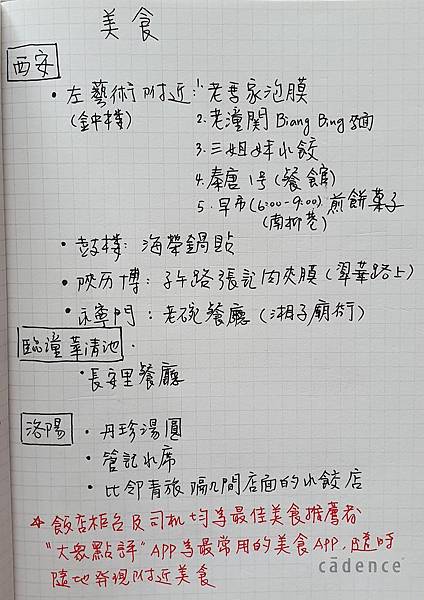 美食
西安
・左藝術附近:1.老馬家泡膜
(鐘樓) 2.老潼関Biang Bing麵
3.三姐妹水餃
4.秦唐1号(餐館)
5.早市(6:00-9:00)煎餅菓子
(南柳巷)
・鼓樓:海榮鍋貼
・陝历博:子午路張記肉夾膜(翠華路上)
・永寧門:老碗餐廳(湘子廟街)
臨潼華清池.
・長安里餐廳
洛陽 ・丹珍湯圓
・管記水席
・比邻青旅隔几間店面的水餃店
☆飯店柜台及司机均為最佳美食推薦者
"大眾點評"APP為最常用的美食APP,隨時
隨地發現附近美食
cādence